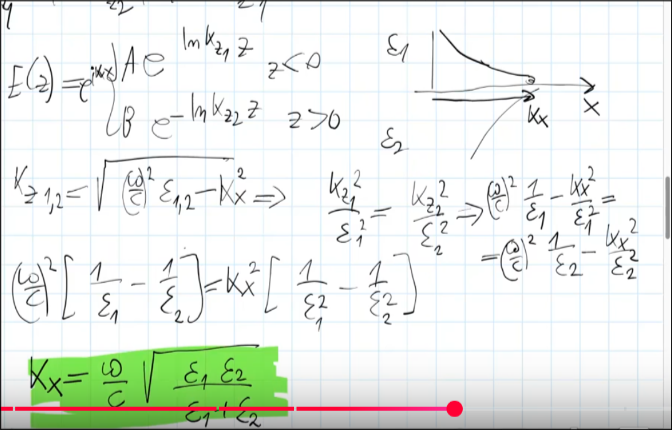 E(z) = e^{ik_x x} { A e^{Im k_{z1} z} z<0
B e^{-Im k_{z2} z} z>0
ε₁
k_x
x
ε₂
K_{z1,2} = √((ω/c)² ε_{1,2} - K_x²) ⇒ K_{z1}²/ε₁² = K_{z2}²/ε₂² ⇒ (ω/c)² 1/ε₁ - K_x²/ε₁² =
= (ω/c)² 1/ε₂ - K_x²/ε₂²
(ω/c)² [1/ε₁ - 1/ε₂] = K_x² [1/ε₁² - 1/ε₂²]
K_x = ω/c √(ε₁ ε₂ / (ε₁ + ε₂))